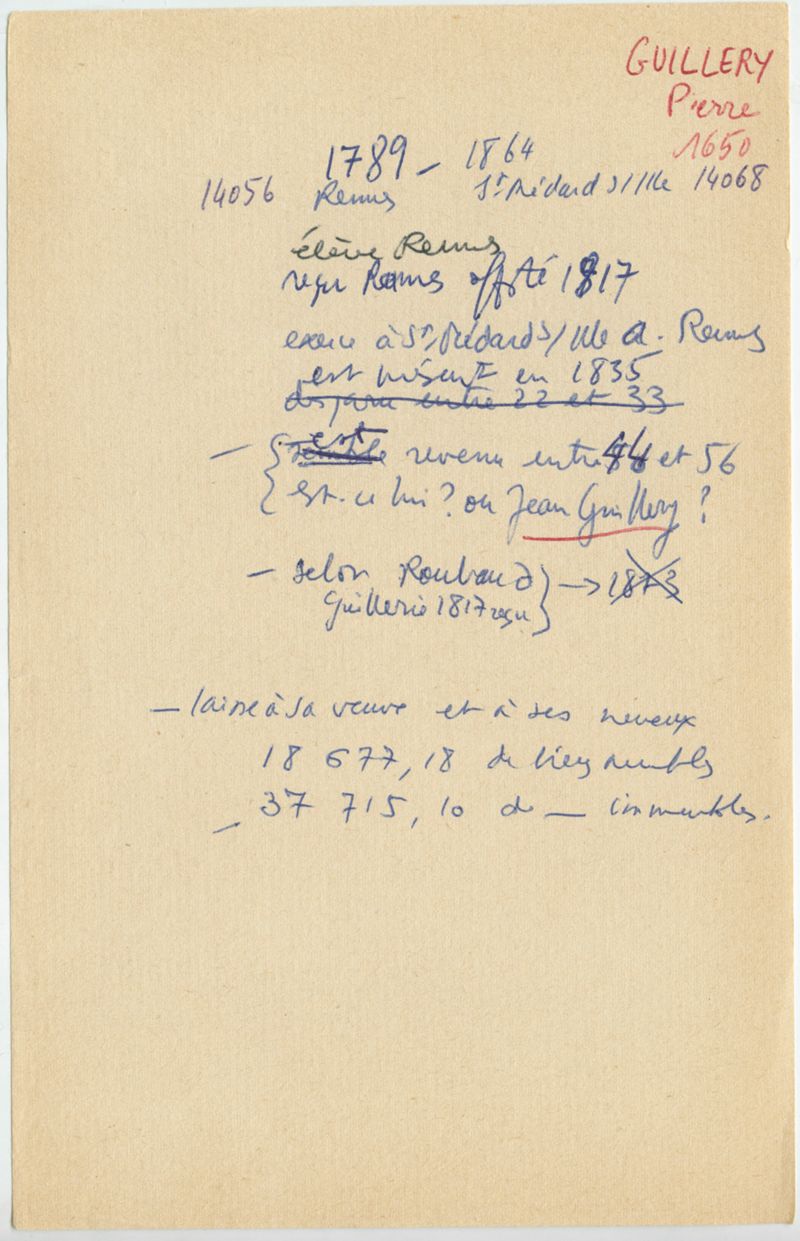 GUILLERY
Pierre
1650
1789 – 1864
14056 Rennes St Médard s/Ille 14068
élève Rennes
reçu Rennes off té 1817
exerce à St Médard s/Ille a. Rennes
est présent en 1835
disparu entre 22 et 33
– semble est revenu entre 44 et 56
est-ce lui? ou Jean Guillery?
– selon Roubaud → 1873
Guillerie 1817 reçu
– laisse à sa veuve et à ses neveux
18 677,18 de biens meubles
– 37 715,10 de — immeubles.